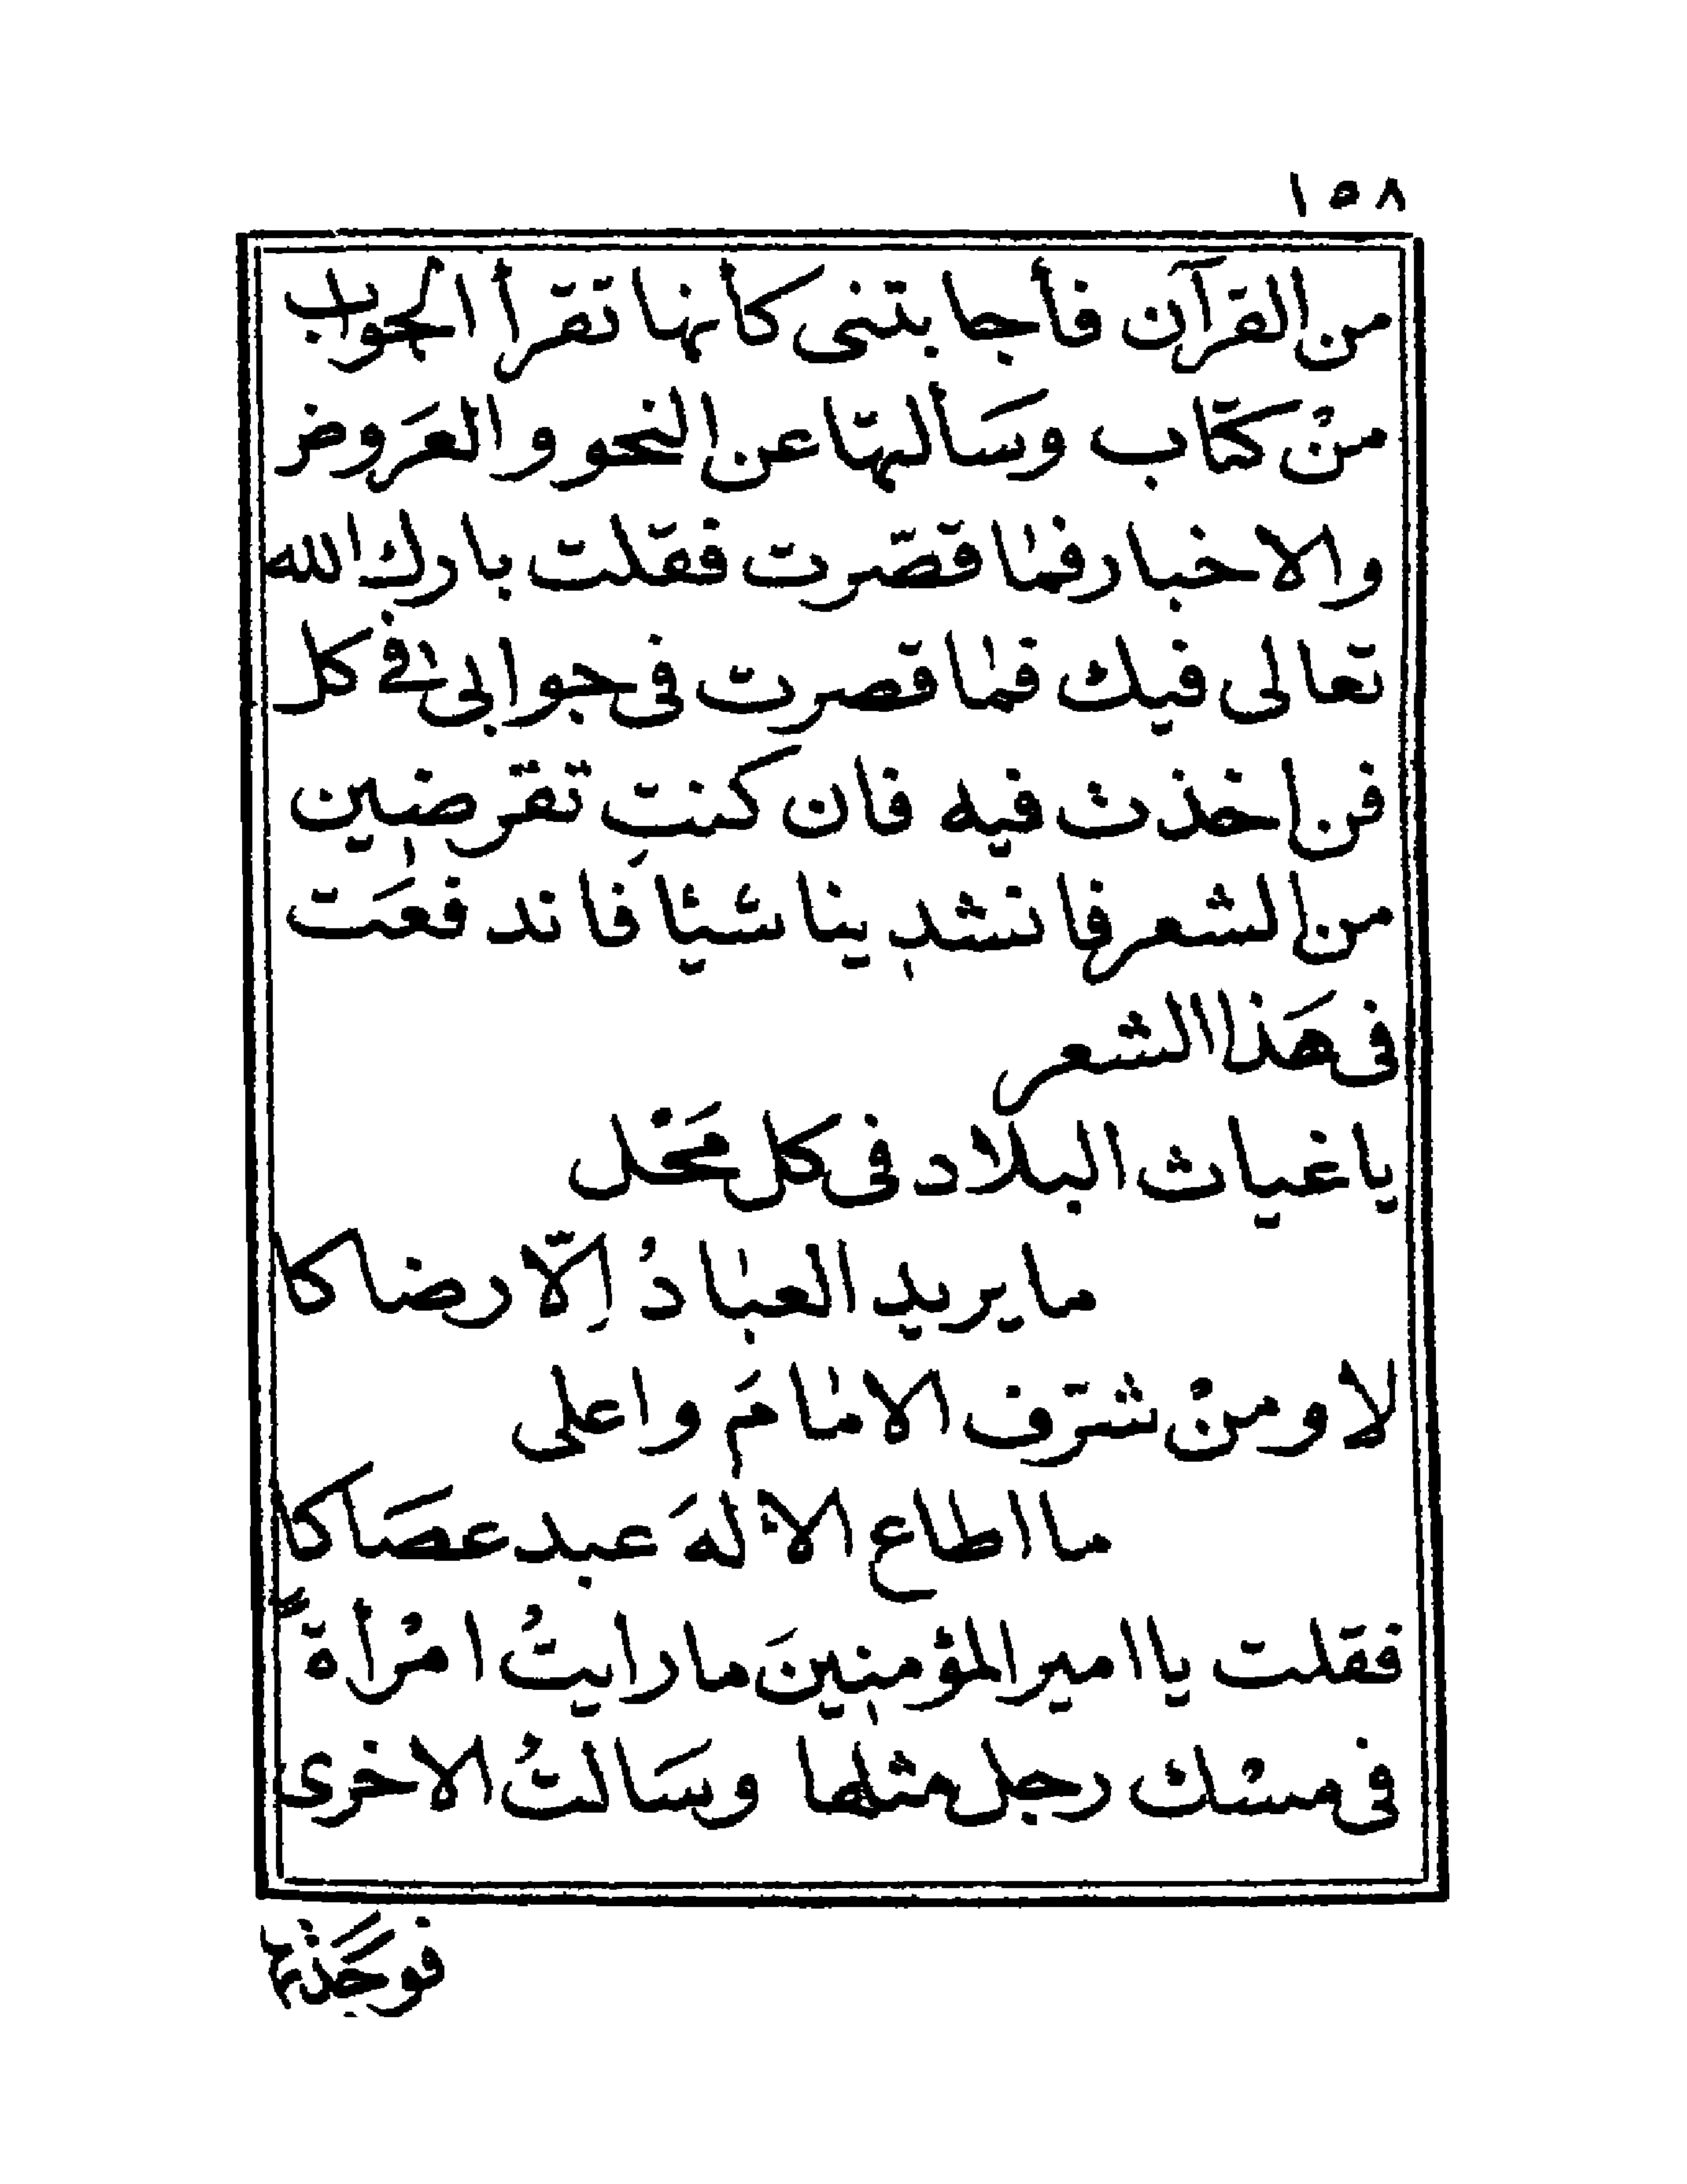 ١٥٨
من القرآن فأجابتنى كأنها تقرأ الجواب
منْ كتَاب وسَألتهَا عن النحو والعَروض
والاخبار فمٰا قصّرت فقلت بارك الله
تعالى فيك فمٰا قصرت فى جوابى فى كل
فن اخذت فيه فان كنتِ تقرضين
من الشعر فانشدينا شيئا فاندفعَت
فى هَذا الشعر
يا غياث البلاد فى كل مَحْل
ما يريد العبٰادُ اِلاّ رضاكا
لا ومنْ شرّف الامٰامَ واعلى
ما اطاع الالٰهَ عبد عصَاكا
فقلت يا امير المؤمنينَ ما رايتُ امْرأةً
فى مسْك رجل مثلها وسَالتُ الاخرى
فوجَدْتها